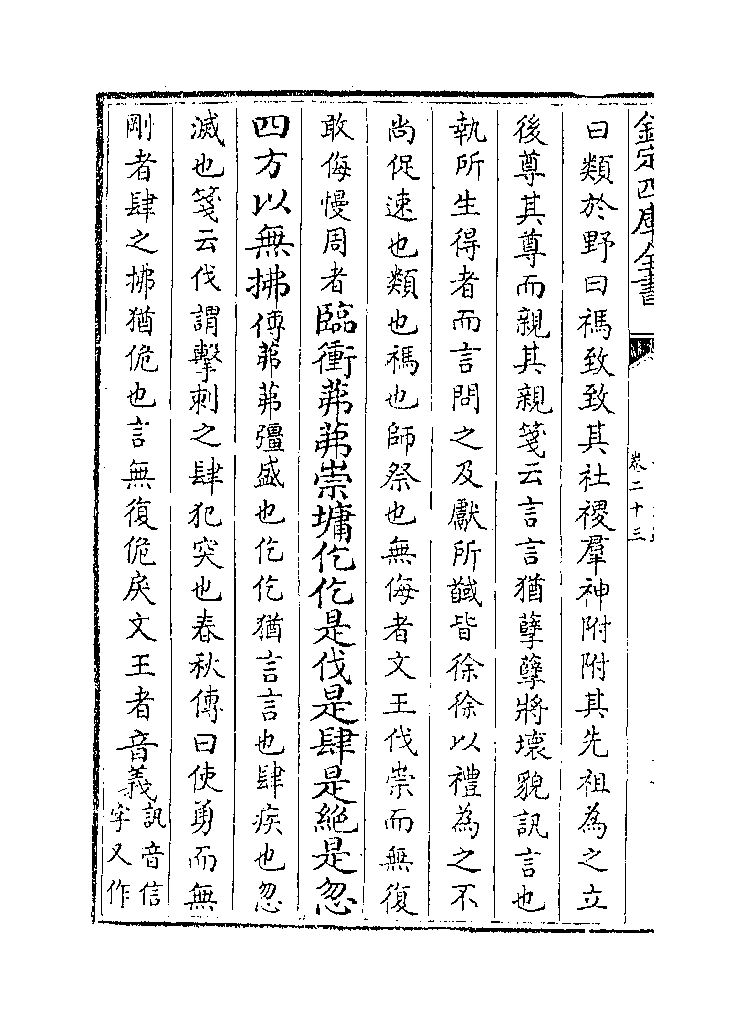 欽定四庫全書
卷二十三
曰類於野曰禡致致其社稷羣神附附其先祖為之立
後尊其尊而親其親箋云言言猶孽孽將壞貌訊言也
執所生得者而言問之及獻所馘皆徐徐以禮為之不
尚促速也類也禡也師祭也無侮者文王伐崇而無復
敢侮慢周者臨衝茀茀崇墉仡仡是伐是肆是絕是忽
四方以無拂傳茀茀彊盛也仡仡猶言言也肆疾也忽
滅也箋云伐謂擊刺之肆犯突也春秋傳曰使勇而無
剛者肆之拂猶佹也言無復佹戾文王者音義訊音信
字又作